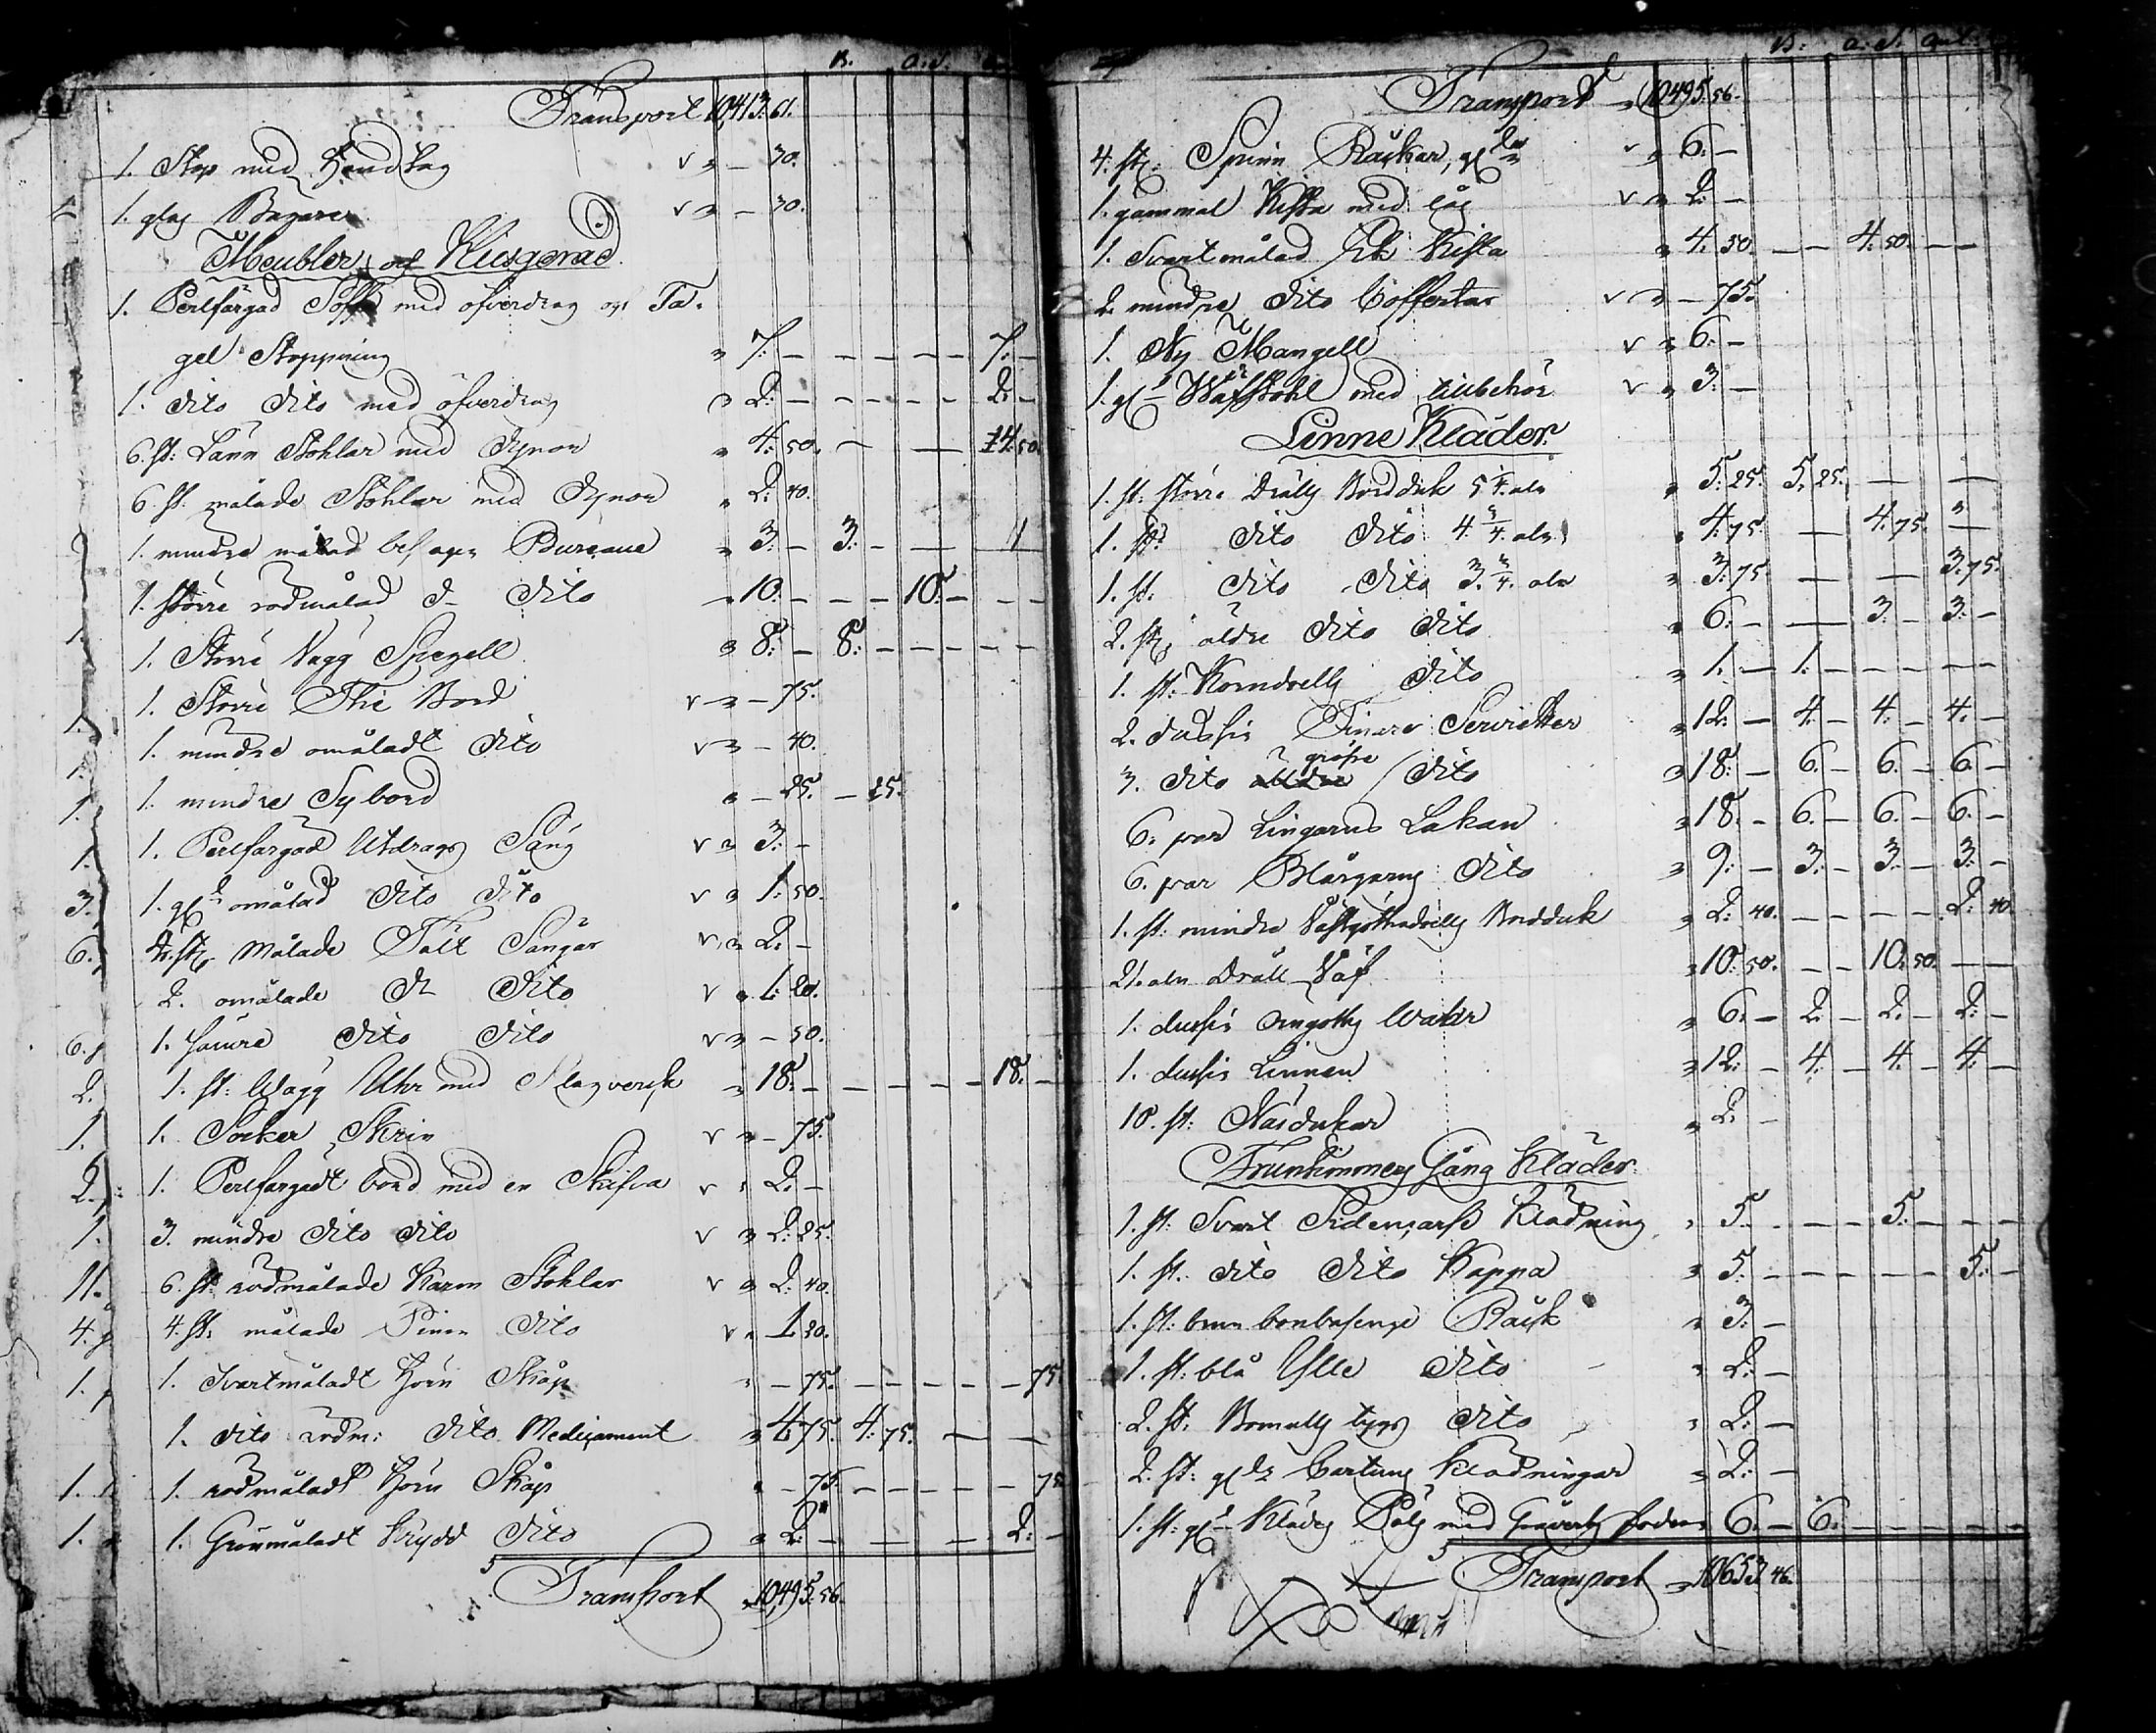 B. A. S.
Transport 10,413: 61.
1. Stop med Handtag v " — 30.
1. glas Bägare v " — 30.
Meubler och Husgeråd.
1. Perlfärgad Soffa med öfverdrag och Ta-
gel Stoppning " 7: — — — — — 7: —
1. dito dito med öfverdrag " 2: — — — — — 2: —
6. st: Länn Stohlar med Dynor " 4: 50. — — 4: 50.
6 st. målade Stohlar med Dynor " 2: 40.
1. mindre målad Bureaue " 3: — 3: — —
1. större rödmålad d— dito " 10: — — — 10: — — —
1. Större Vägg Spegell " 8: — 8: — — — — —
1. Större Thé Bord v " — 75.
1. mindre omåladt dito v " — 40.
1. mindre Sybord " — 25. — 25.
1. Perlfärgad Utdrags Säng v " 3: —
1. gl omålad dito dito v " 1: 50.
4. st. Målade Tält Sängar v " 2: —
2. omålade d— dito v " 1: 20.
1. sämre dito dito v " — 50.
1. st: Wägg Uhr med Slagverk " 18: — — — — — 18: —
1. Socker Skrin v " — 75.
1. Perlfärgadt bord med en Skifva v " 2: —
3. mindre dito dito v " 2: 25.
6. st: rödmålade Karm Stohlar v " 2: 40.
4. st: målade Pinn dito v " 1. 20.
1. Svartmåladt Hörn Skåp " — 75. — — — — — 75
1. dito rödm: dito Medicament " 4 75. 4: 75. — —
1. rödmåladt Hörn Skåp " — 75. — — — — — 75
1. Grönmåladt Krydd dito " 2: — — — 2: —
Transport 10,495: 56.
B: A. S. Aut.
Transport " 10495. 56.
4. st. Spinn Råckar, gl v " 6: —
1. gammal Kista med lås v " 2: —
1. Svartmålad Ek Kista " 4: 50. — — 4: 50. — —
2. mindre dito Coffertar v " — 75.
1. Ny Mangell v " 6: —
1. gl Wäfstohl med tillbehör v " 3: —
Linne Kläder.
1. st: större Drälls Bordduk 5 1/4. aln " 5: 25. 5: 25. — —
1. st: dito dito 4. 3/4. aln " 4: 75. — 4: 75. —
1. st. dito dito 3. 3/4. aln " 3: 75. — — 3: 75.
2. st. äldre dito dito " 6: — — 3: — 3: —
1. st: Korndrells dito " 1: — 1: — — — — —
2. dussin Finare Servietter " 12: — 4: — 4: — 4: —
3. dito gröfre dito " 18: — 6: — 6: — 6: —
6. par Lingarns Lakan " 18: — 6: — 6: — 6: —
6. par Blårgarns dito " 9: — 3: — 3: — 3: —
1. st: mindre Västgöthadrells Bordduk " 2: 40. — — — — 2: 40
21. aln Dräll Väf " 10: 50. — — 10: 50. — —
1. dussin Örngotts Wahr " 6: — 2: — 2: — 2: —
1. dussin Linnen " 12: — 4: — 4: — 4: —
10. st: Näsdukar " 2: —
Fruntimmers Gång Kläder
1. st: Svart Klädning " 5: — — — 5: — — —
1. st. dito dito Kappa " 5: — — — — — 5: —
1. st: brun Råck " 3: —
1. st: blå Ylle dito " 2: —
2. st. Bomulls tygs dito " 2: —
2. st: gl Cartuns Klädningar " 2: —
1. st: gl Klädes Päls med Gråverks foder " 6: — 6: — — — — —
Transport " 10653 46.